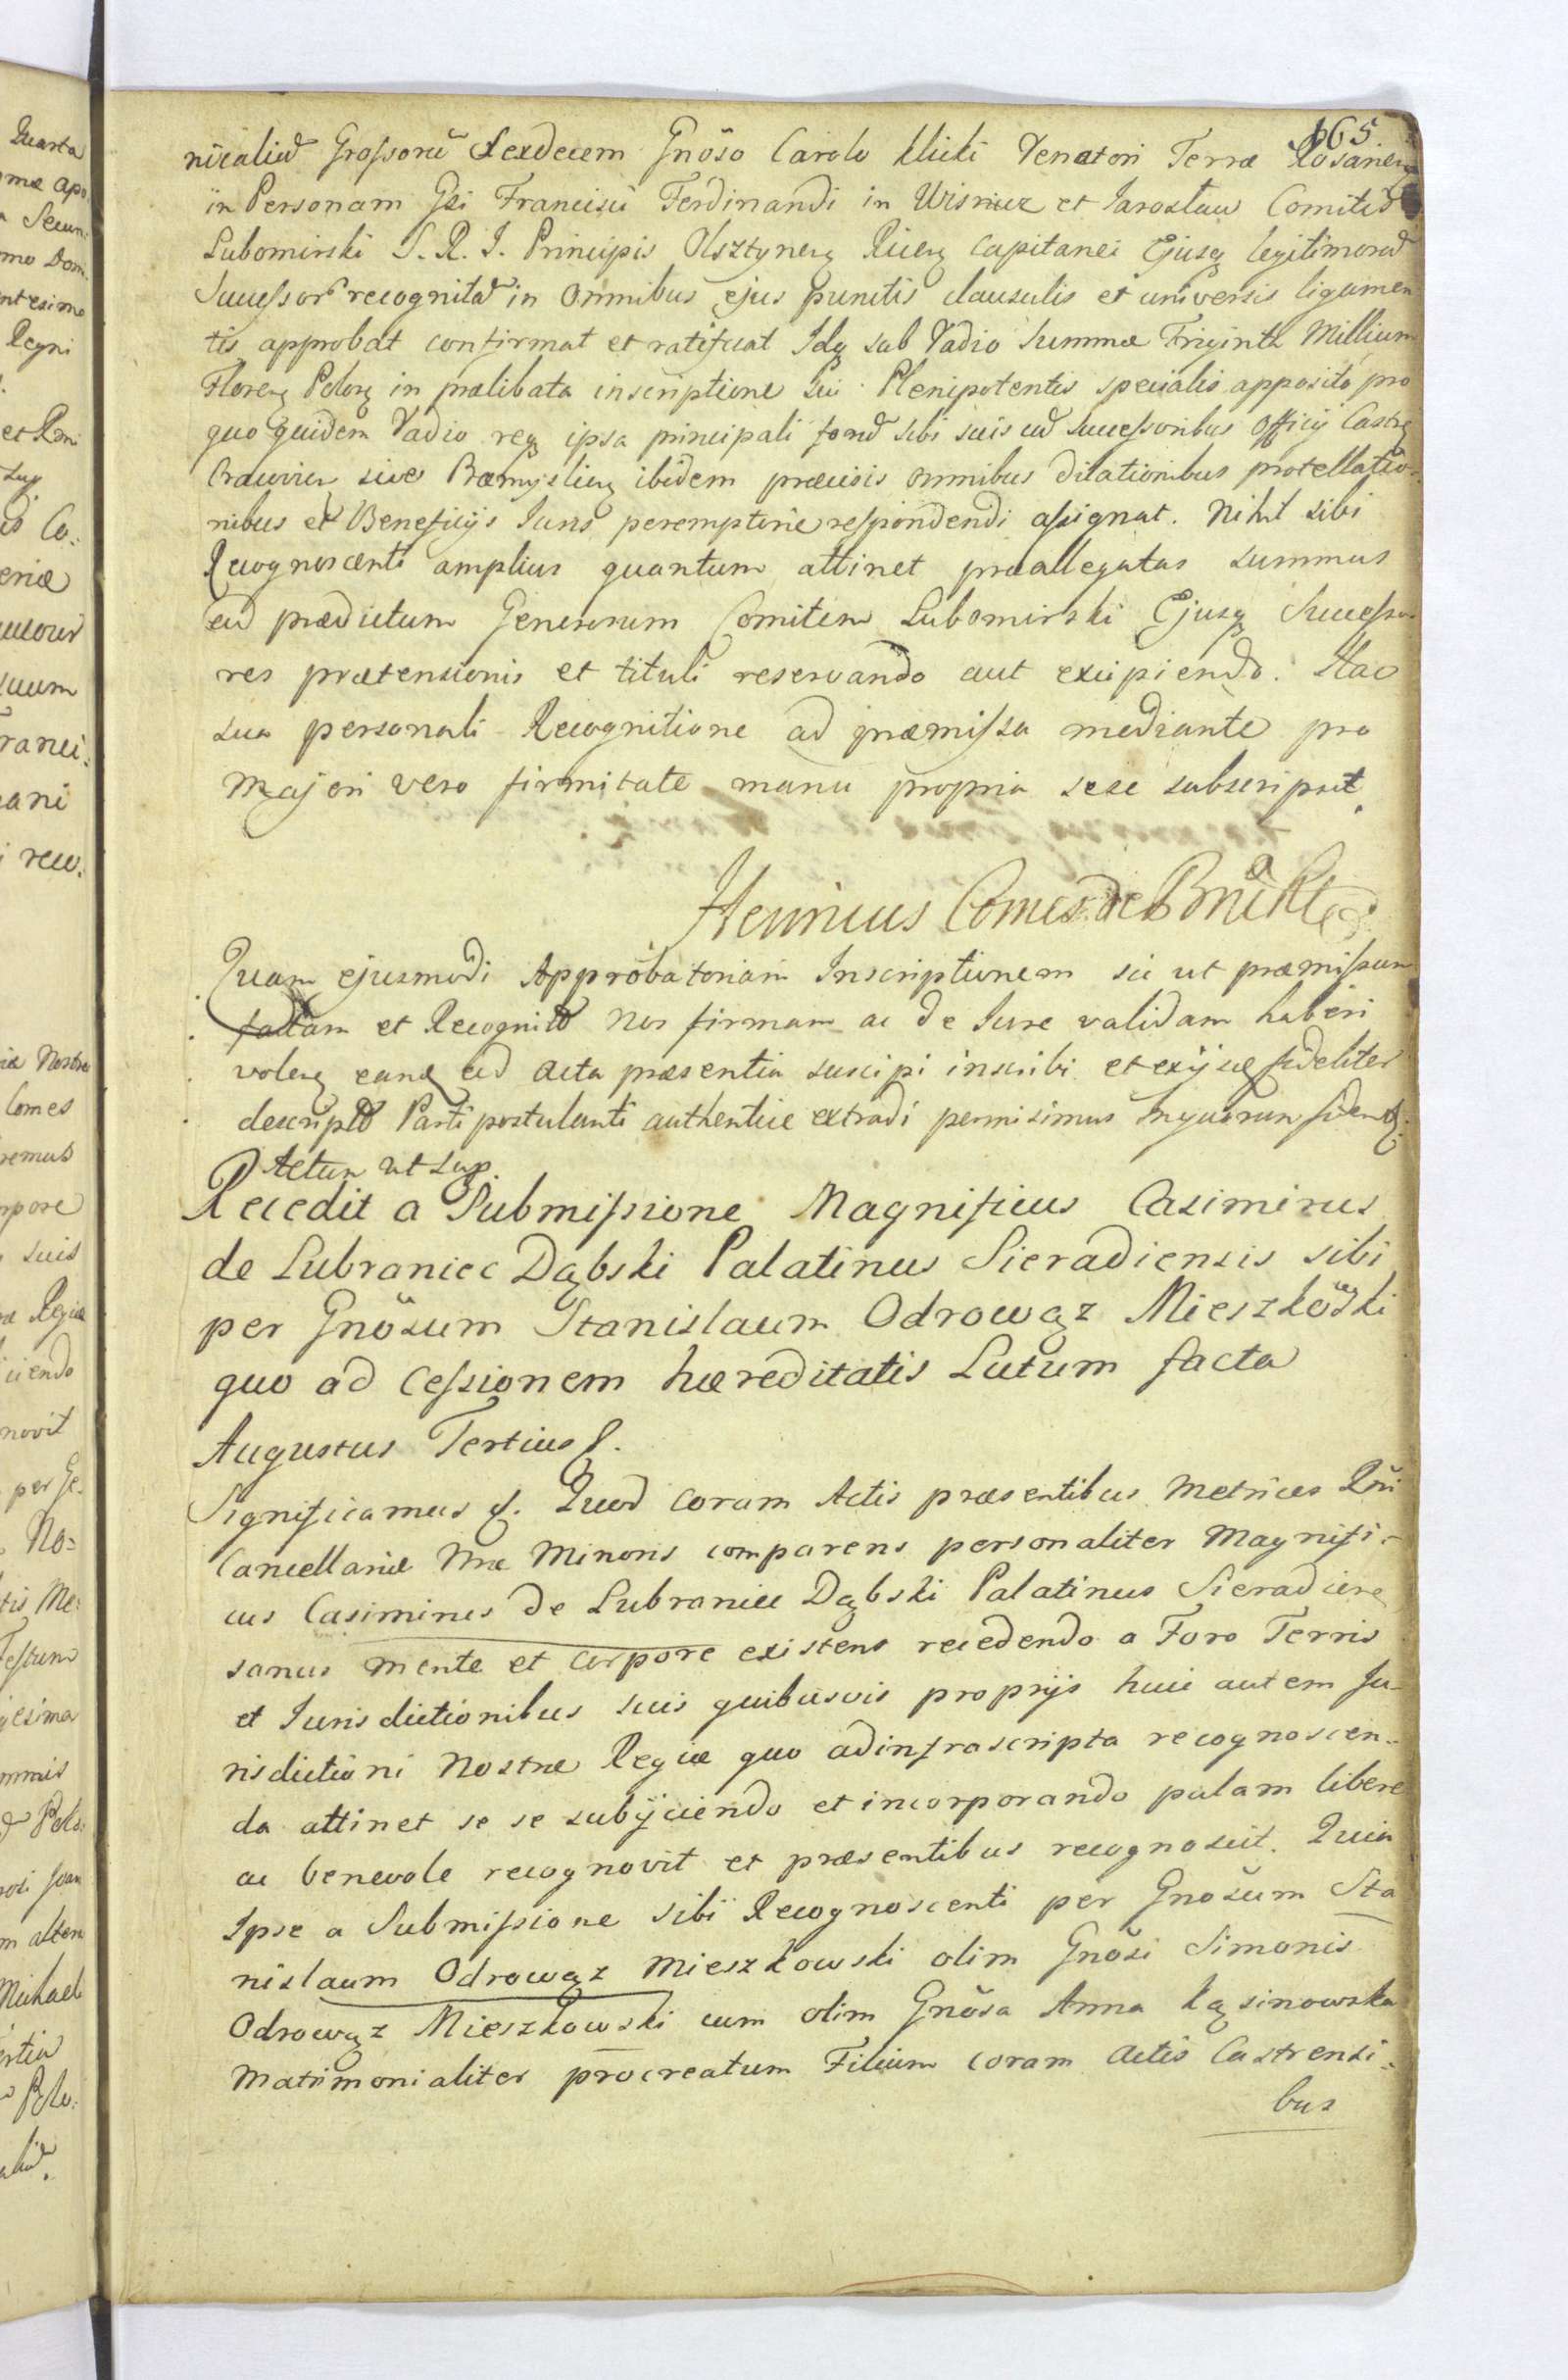 165
nicaliu᷉ Grossoru᷉ Sexdecem Gnoso Carolo Klicki Venatori Terræ Rosanen
in Personam Gsi Francisci Ferdinandi in Wisnicz et Jaroslaw Comitis
Lubomirski S. R. I. Principis Olsztynen Ricen Capitanei Ejusq legitimorum
Successor recognita in omnibus ejus punctis clausulis et universis ligamen
tis approbat confirmat et ratificat Idq sub Vadio Summæ Triginta Millium
Floren Polon in prælibata inscriptione sui Plenipotentis specialis apposito pro
quo quidem Vadio req ipsa principali foru sibi suis ad Successoribus Officij Castren
Cracovien sive Præmyslien ibidem præcisis omnibus dilationibus protellatio-
nibus et Beneficijs Juris peremptorie respondendi assignat. Nihil sibi
Recognoscenti amplius quantum attinet præallegatas summas
ad prædictum Generosum Comitem Lubomirski Ejusq Successo
res prætensionis et tituli reservando aut excipiendo. Hac
sua personali Recognitione ad præmissa mediante pro
Majori vero firmitate manu propria sese subscripsit.
Henricus Comes de Brühl
Quam ejusmodi Approbatoriam Inscriptionem sic ut præmissum
factam et Recognit Nos firmam ac de Jure validam haberi
volen eanq ad Acta præsentia suscipi inscribi et exijsce fideliter
descript Parti postulanti authentice extradi permisimus Inquorum fidem
Actum ut Sup.
Recedit a Submissione Magnificus Casimirus
de Lubraniec Dąbski Palatinus Sieradiensis sibi
per Gnosum Stanislaum Odrowąz Mieszkowski
quo ad Cessionem hæreditatis Lutum facta
Augustus Tertius &.
Significamus &. Quod coram Actis præsentibus Metrices Rni
Cancellariæ Nræ Minoris comparens personaliter Magnifi-
cus Casimirus de Lubraniec Dąbski Palatinus Sieradien
sanus mente et corpore existens recedendo a Foro Terris
et Jurisdictionibus suis quibusvis proprijs huic autem Ju-
risdictioni Nostræ Regiæ quo ad infrascripta recognoscen-
da attinet se se subijciendo et incorporando palam libere
ac benevole recognovit et præsentibus recognoscit. Quia
Ipse a Submissione sibi Recognoscenti per Gnosum Sta
nislaum Odrowąz Mieszkowski olim Gnosi Simonis
Odrowąz Mieszkowski cum olim Gnosa Anna Kąsinowska
Matrimonialiter procreatum Filium coram Actis Castrensi-
bus